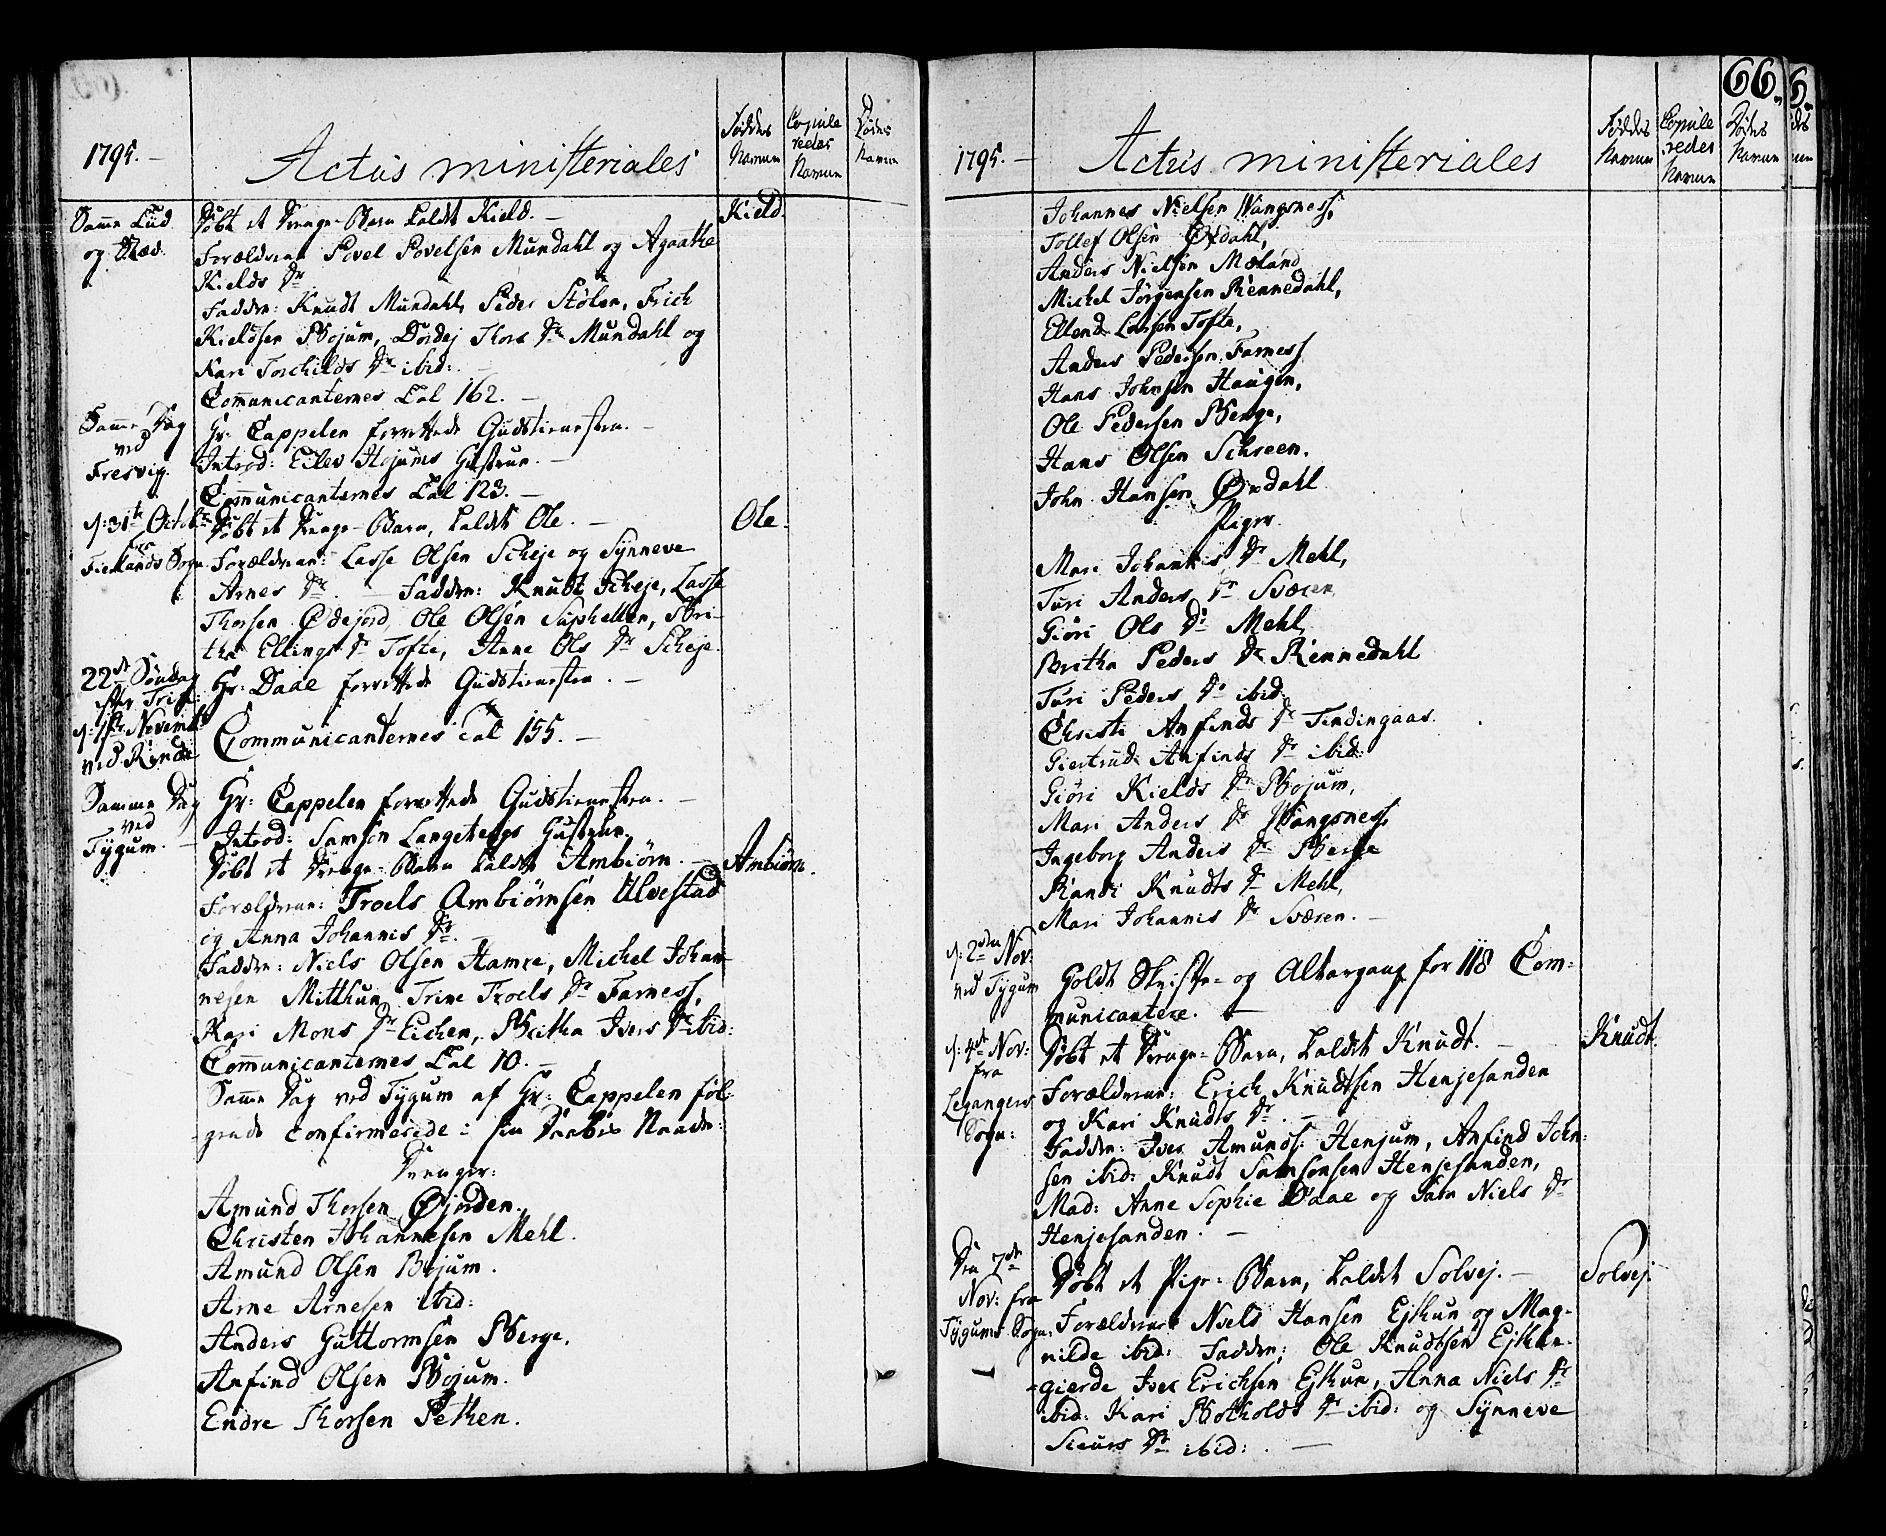 1795. –
Actus ministeriales
Føddes Navne
Copuleredes Navne
Dødes Navne
Samme Tiid og Stæd.
Døbt et Drenge-Barn kaldet Kield. –
Kield.
Forældrene Povel Povelsen Mundahl og Agaathe
Kields Dr
Faddere: Knudt Mundahl, Peder Stølen, Erich
Kieldsen Bojum, Dordej Thors Dr Mundahl og
Kari Torchilds Dr ibid: –
Communicanternes Tal 162. –
Samme Dag ved Fresvig.
Hr: Cappelen forrettede Gudstienesten. –
Introd: Eilev Hojums Hustrue. –
Communicanternes Tal 123. –
d: 31te Octobr
Døbt et Drenge-Barn, kaldet Ole. –
Ole.
Fierlands Sogn
Forældrene: Lasse Olsen Scheje og Synneve
Arnes Dr. – Faddere: Knudt Scheje, Lasse
Thorsen Ødejord, Ole Olsen Suphellen, Bri-
tha Ellings Dr Tofte, Anne Ols Dr Scheje.
22de Søndag efter Trinit:
Hr: Daae forrettede Gudstienesten. –
d: 1ste Novembr ved Rinde
Communicanternes Tal 155. –
Samme Dag ved Tygum. –
Hr: Cappelen forrettede Gudstienesten. –
Introd: Samson Langeteigs Hustrue.
Døbt et Drenge-Barn kaldet Ambiörn. –
Ambiörn.
Forældrene: Troels Ambiörnsen Ulvestad
og Anna Johannis Dr. –
Faddere: Niels Olsen Hamre, Michel Johan-
nesen Mitthun, Trine Troels Dr Farness,
Kari Mons Dr Eichen, Britha Ivers Dr ibid:
Communicanternes Tal 10. –
Samme Dag ved Tygum af Hr: Cappelen föl-
gende confirmerede i sin Daabes Naade:
Drenger:
Amund Thorsen Øjorden.
Christen Johannesen Mehl.
Amund Olsen Bojum.
Arne Arnesen ibid:
Anders Guttormsen Berge.
Anfind Olsen Bojum.
Endre Thorsen Pethen.
66.
1795. –
Actus ministeriales
Føddes Navne
Copuleredes Navne
Dødes Navne
Johannes Nielsen Wangsness,
Tollef Olsen Øxdahl,
Anders Nielsen Mæland
Michel Jörgensen Rennedahl,
Ellend Larsen Tofte,
Anders Pedersen Farness
Hans Johnsen Haugen,
Ole Pedersen Berge,
Hans Olsen Schreen.
John Hansen Øxdahl
Piger
Mari Johannis Dr Mehl,
Turi Anders Dr Sværen
Giöri Ols Dr Mehl,
Britha Peders Dr Rennedahl
Turi Peders Dr ibid:
Christi Anfinds Dr Tendingaas.
Giertrud Anfinds Dr ibid:
Giöri Kields Dr Bojum,
Mari Anders Dr Wangsness,
Ingeborg Anders Dr Berge
Randi Knudts Dr Mehl,
Mari Johannis Dr Sværen. –
d: 2den Nov: ved Tygum
Holdt Skrifte- og Altergang for 118 Com-
municantere. –
d: 4de Nov: fra Leganger Sogn:
Døbt et Drenge-Barn, kaldet Knudt. –
Knudt.
Forældrene: Erich Knudtsen Henjesanden
og Kari Knudts Dr. –
Faddere: Iver Amunds: Henjum, Anfind John-
sen ibid: Knudt Samsonsen Henjesanden,
Mad: Anne Sophie Daae og Niels Dr
Henjesanden. –
Den 7de Nov: fra Tygums Sogn. –
Døbt et Pige-Barn, kaldet Solvej. –
Solvej.
Forældrene Niels Hansen Ejthun og Mag-
nilde ibid: Faddere; Ole Knudtsen Ejthun-
gierde Iver Erichsen Ejthun, Anna Niels Dr
ibid: Kari Botholds Dr ibid: og Synneve
Siurs Dr ibid: . –